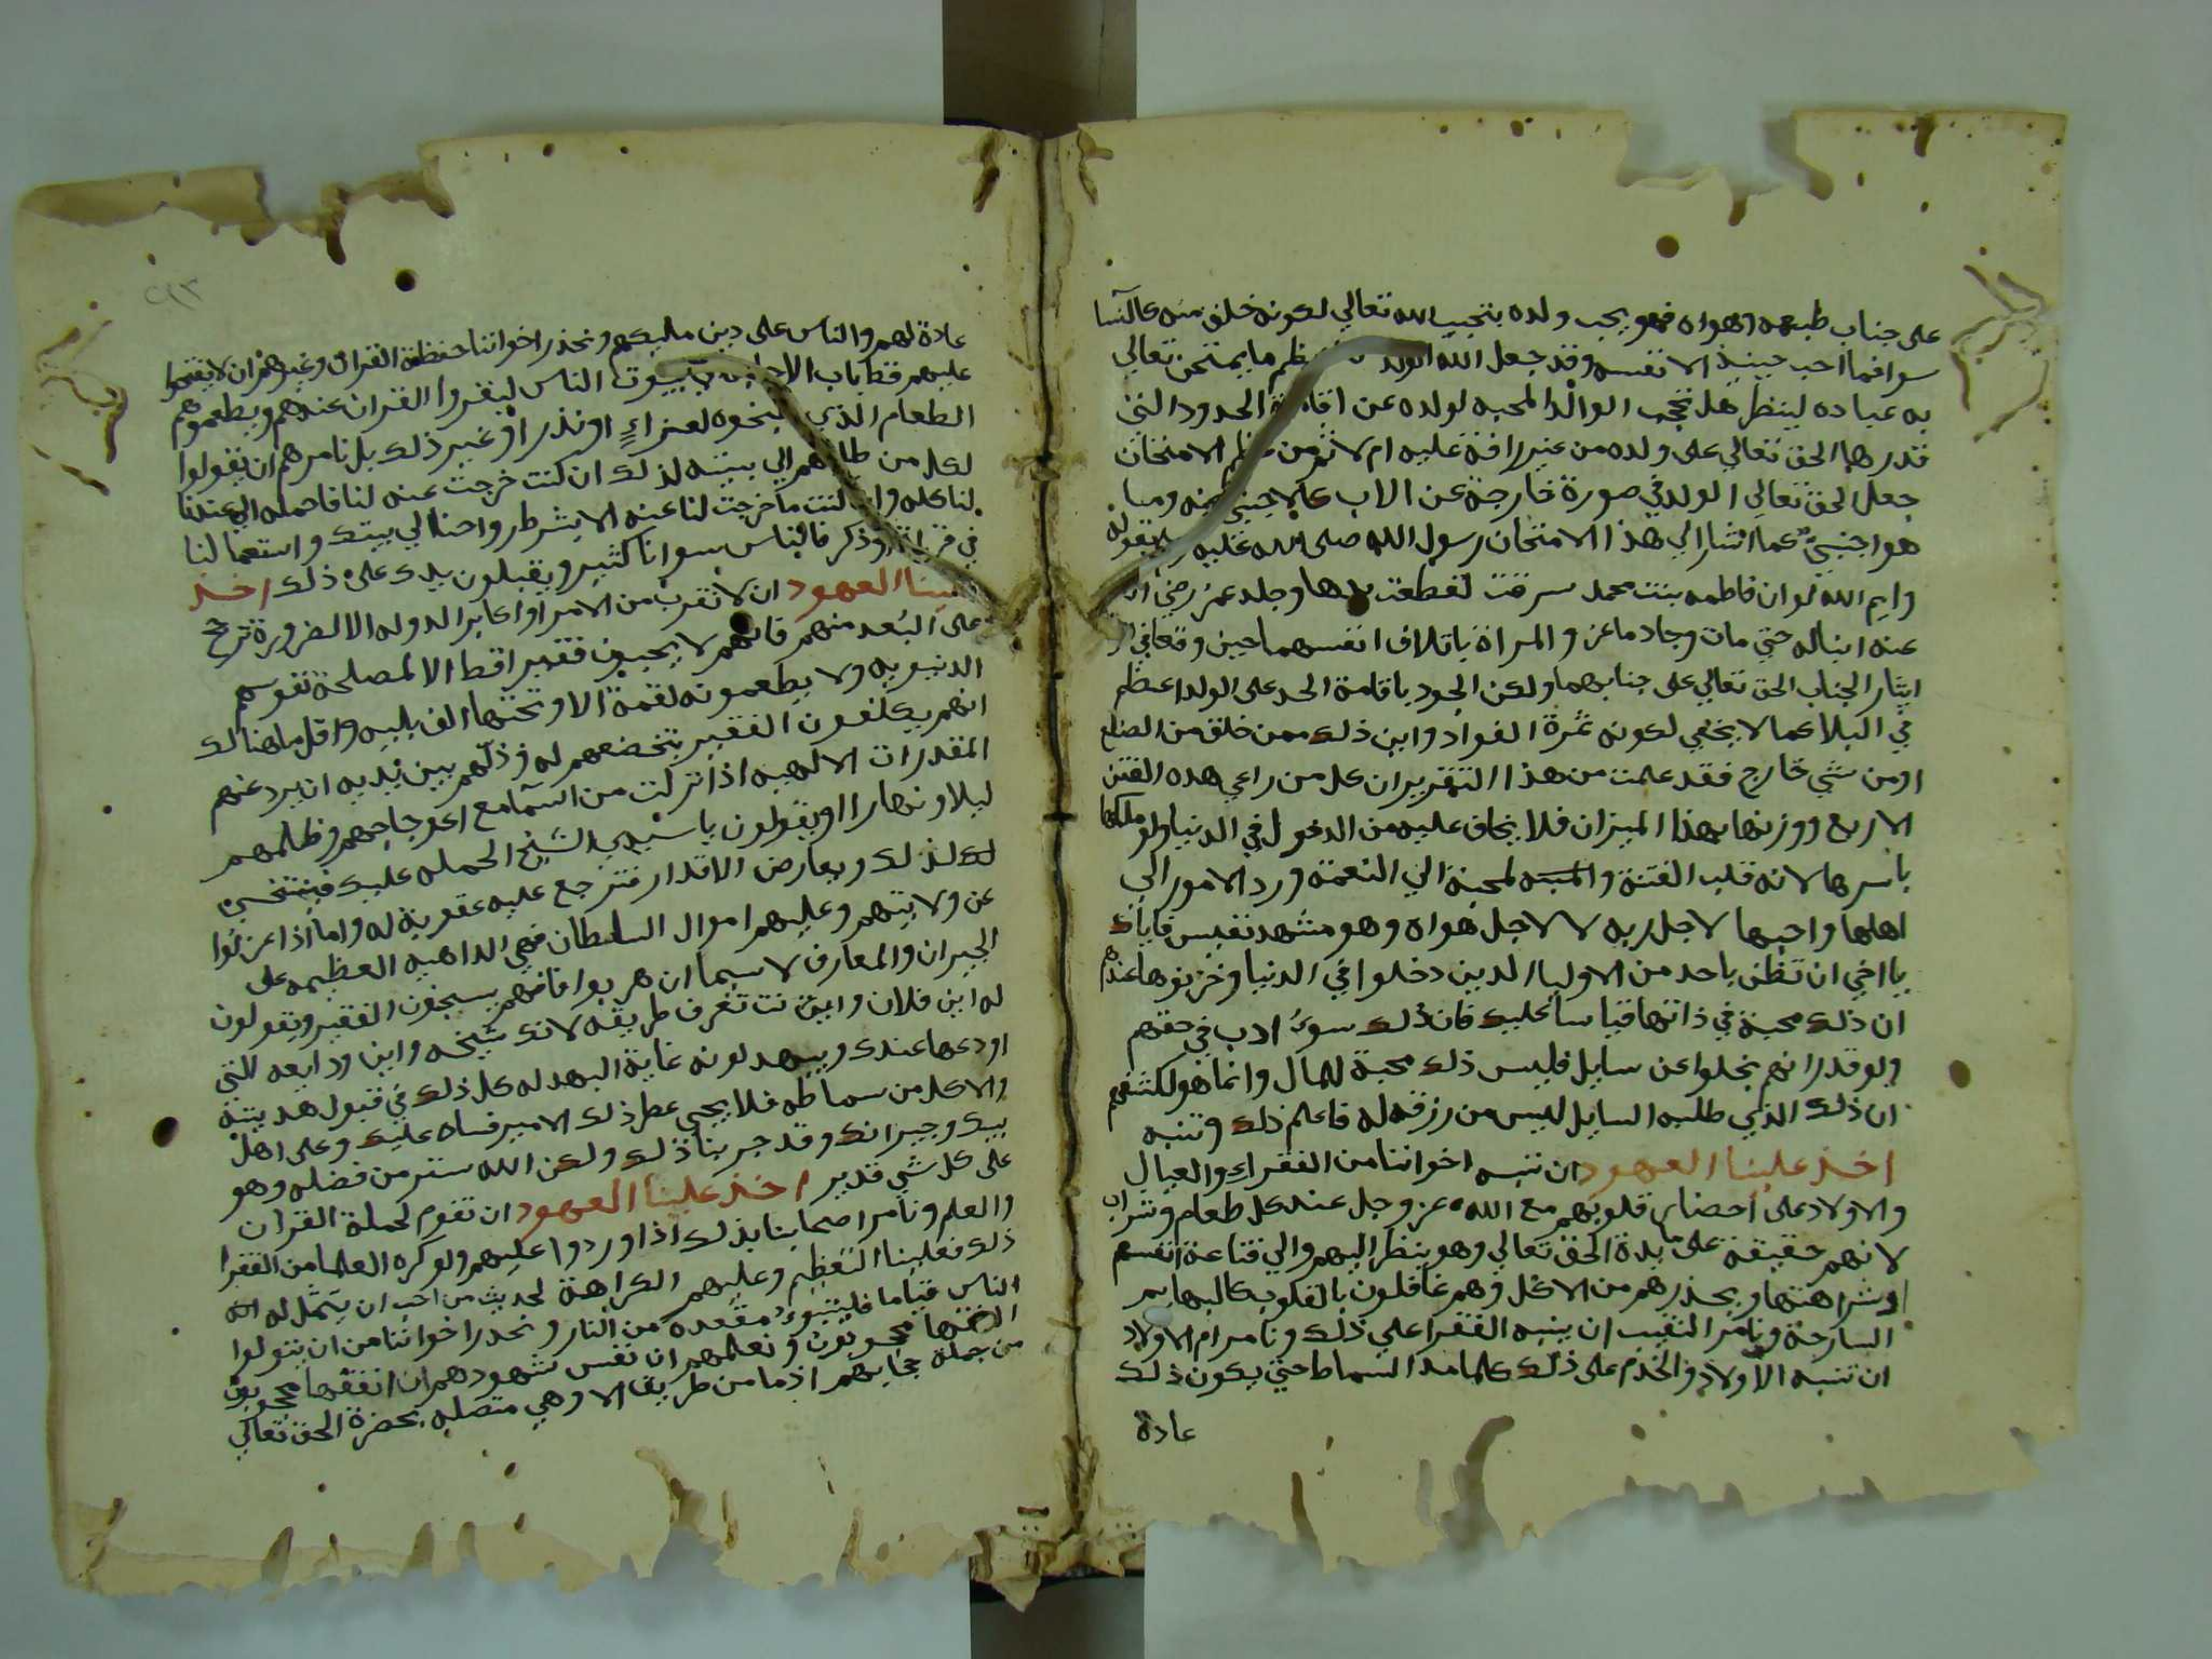 على جناب طبعه وهواه فهو يحب ولده بتحبيب الله تعالي لكونه خلق منه كالنسا
سوا فما احب حينيذ الا نفسه وقد جعل الله الولد ما يمتحن تعالي
به عباده لينظر هل تحجب الوالد المحبه لولده عن اقامة الحدود التي
قدرها الحق تعالي على ولده من غير رافة عليه ام لا ثم من الامتحان
جعل الحق تعالي الولد في صورة خارجة عن الاب كالاجنبي عنه وما
هو اجنبي كما اشار الي هذا الامتحان رسول الله صلى الله عليه بقوله
وايم الله لو ان فاطمه بنت محمد سرقت لقطعت يدها وجلد عمر رضي الله
عنه ابنا له حتي مات وجاد ماعز والمراة باتلاف انفسهما حين وقعا في
ايثار الجناب الحق تعالي على جنابهما ولكن الجود باقامة الحد على الولد اعظم
في البلا كما لا يخفي لكونه ثمرة الفواد واين ذلك ممن خلق من الضلع
او من شي خارج فقد علمت من هذا التقرير ان كل من راعي هذه الفتن
الاربع ووزنها بهذا الميزان فلا يخاف عليه من الدخول في الدنيا ولو ملكها
باسرها لانه قلب الفتنة والمحبه لمحبة الي النعمة ورد الامور الي
اهلها واحبها لاجل ربه لا لاجل هواه وهو مشهد نفيس فاياك
يا اخي ان تظن باحد من الاوليا الذين دخلوا في الدنيا وخزنوها عندهم
ان ذلك محبة في ذاتها قياسا عليك فان ذلك سوء ادب في حقهم
ولو قدر انهم بخلوا عن سايل فليس ذلك محبة للمال وانما هو لكشفهم
ان ذلك الذي طلبه السايل ليس من رزقه له فاعلم ذلك وتنبه
اخذ علينا العهود ان ننبه اخواننا من الفقراء والعيال
والاولاد على احضار قلوبهم مع الله عز وجل عند كل طعام وشراب
لانهم حقيقة على مايدة الحق تعالي وهو ينظر اليهم والي قناعة انفسهم
او شراهتها ويحذرهم من الاكل وهم غافلون بالقلوب كالبهايم
السارحة ونامر النقيب ان ينبه الفقرا علي ذلك ونامر ام الاولاد
ان تنبه الاولاد والخدم على ذلك كلما مدا السماط حتي يكون ذلك
عادة
عادة لهم والناس على دين مليكهم ونحذر اخواننا حفظة القران وغيرهم ان لا يفتحوا
عليهم قط باب الاجابه لبيوت الناس ليقروا القران عندهم ويطعموهم
الطعام الذي لعزاء او نذر او غير ذلك بل نامرهم ان يقولوا
لكل من طلبهم الي بيته لذلك ان كنت خرجت عنه لنا فاحمله الي عندنا
لنا كله وان كنت ما خرجت لنا عنه الا بشرط رواحنا لي بيتك واستعمالنا
في قراة او ذكر فالناس سوانا كثير ويقبلون يدك على ذلك اخذ
علينا العهود ان لا نقرب من الامرا واكابر الدوله الا لضرورة ترجح
على البعد منهم فانهم لا يحبون فقيرا قط الا لمصلحة نفوسهم
الدنيويه ولا يطعمونه لقمة الا وتحتها الف بليه واقل ما هنالك
انهم يكلفون الفقير بتخضعهم له وذلهم بين يديه ان يرد عنهم
المقدرات الالهيه اذا نزلت من السما مع اعوجاجهم وظلمهم
ليلا ونهارا او يقولون يا سيدي الشيخ الحمله عليك فينتخي
لذلك ويعارض الاقدار فترجع عليه عقوبة له واما اذا عزلوا
عن ولايتهم وعليهم اموال السلطان فهي الداهيه العظيمه على
الجيران والمعارف لاسيما ان هربوا فانهم يسجنون الفقير ويقولون
له اين فلان وانت تعرف طريقه لانك شيخه واين ودايعه التي
اودعها عندك ويبهدلونه غاية البهدله كل ذلك في قبول هديته
والاكل من سماطه فلا يجي عطر ذلك الامير فساه عليك وعلى اهل
بيتك وجيرانك وقد جربنا ذلك ولكن الله ستر من فضله وهو
على كل شي قدير اخذ علينا العهود ان نقوم لحملة القران
والعلم ونامر اصحابنا بذلك اذا وردوا عليهم ولو كره العلما من الفقرا
ذلك فعلينا التعظيم وعليهم الكراهة لحديث من احب ان يتمثل له
الناس قياما فليتبوء مقعده من النار ونحذر اخواننا من ان يقولوا
الفقها محجوبون ونعلمهم ان نفس شهودهم ان الفقها محجوبون
من جملة حجابهم اذ ما من طريق الا وهي متصله بحضرة الحق تعالي